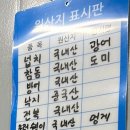 원산지 표시판
품목 원산지
넙치 국내산 광어
참돔 국내산 도미
방어 국내산
낙지 중국산
전복 국내산
국내산 멍게